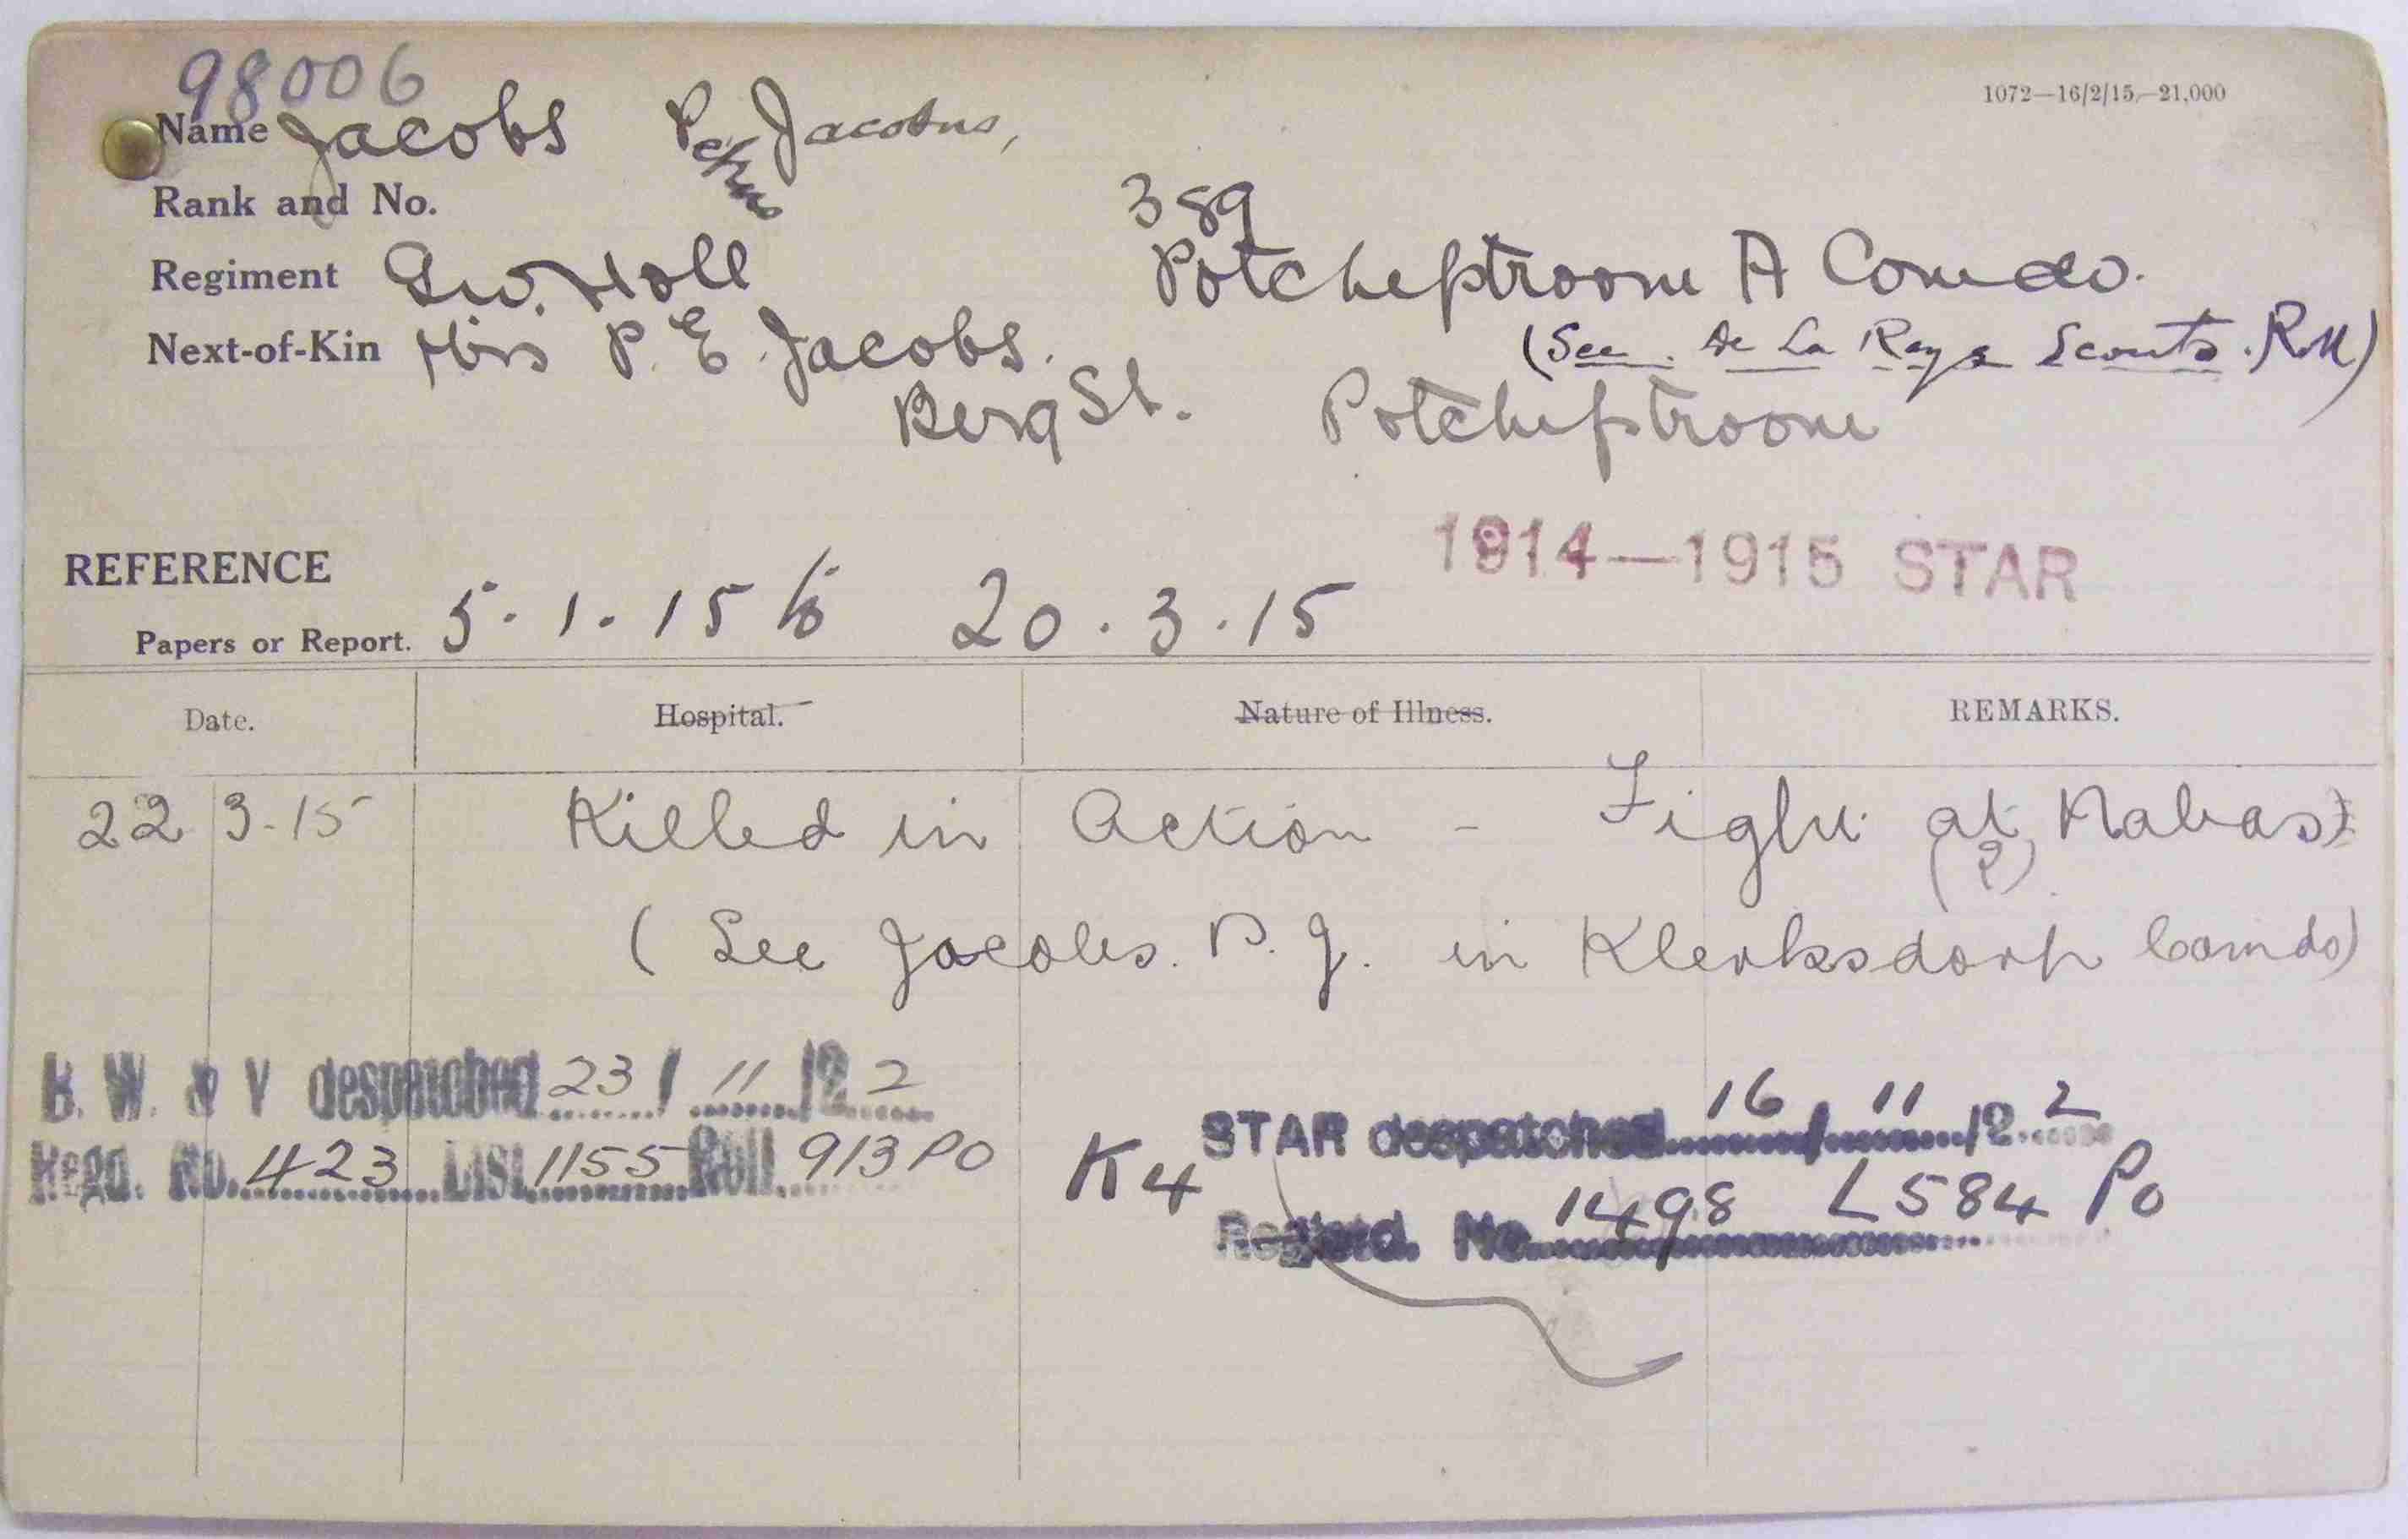 98006
1072—16/2/15.—21,000
Name Jacobs Petrus Jacobus,
Rank and No. 389
Regiment Potchefstroom A Comdo.
Next-of-Kin Mrs P. E. Jacobs. (See De La Reys Scouts. R.M)
Berg St. Potchefstroom
1914—1915 STAR
REFERENCE
Papers or Report. 5.1.15 to 20.3.15
Date. Hospital. Nature of Illness. REMARKS.
22 3-15 Killed in Action - Fight at Nabas
(?)
( See Jacobs. P. J. in Klerksdorp Comdo)
B. W. & V despatched 23/11/22
Regd. No. 423 List 1155 Roll 913 PO
STAR despatched 16/11/22
K4
Registd. No. 1498 L584 Po